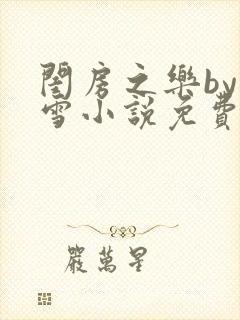 閨房之樂by
雪小説免費
嚴萬星